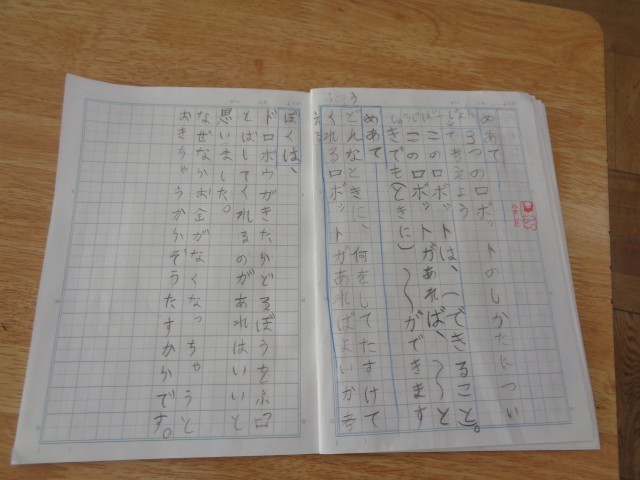 めあて
3つのロボットのしかたについ
てかんがえよう
このロボットは、(できること)。
このロボットがあれば、〜〜と
きでも(ときに)〜〜ができます
めあて
どんなときに、何をしてたすけて
くれるロボットがあればよいか
ぼくは、
ドロボウがきたからどろぼうをふっ
とばしてくれるのがあればいいと
思いました。
なぜならお金がなくなっちゃうと
おきちゃうかかぞうたすかからです。